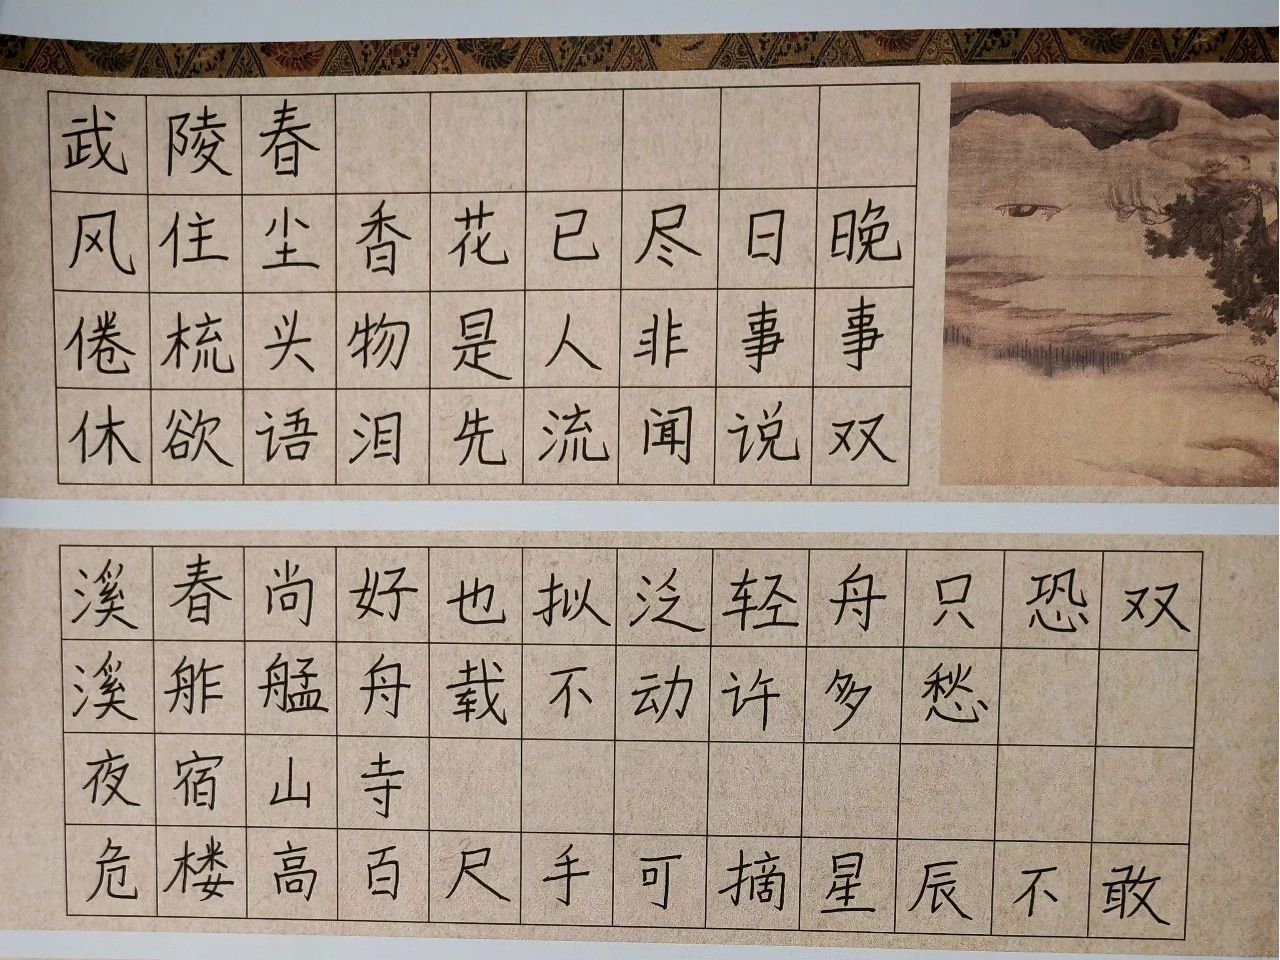 武陵春
风住尘香花已尽日晚
倦梳头物是人非事事
休欲语泪先流闻说双
溪春尚好也拟泛轻舟只恐双
溪舴艋舟载不动许多愁
夜宿山寺
危楼高百尺手可摘星辰不敢